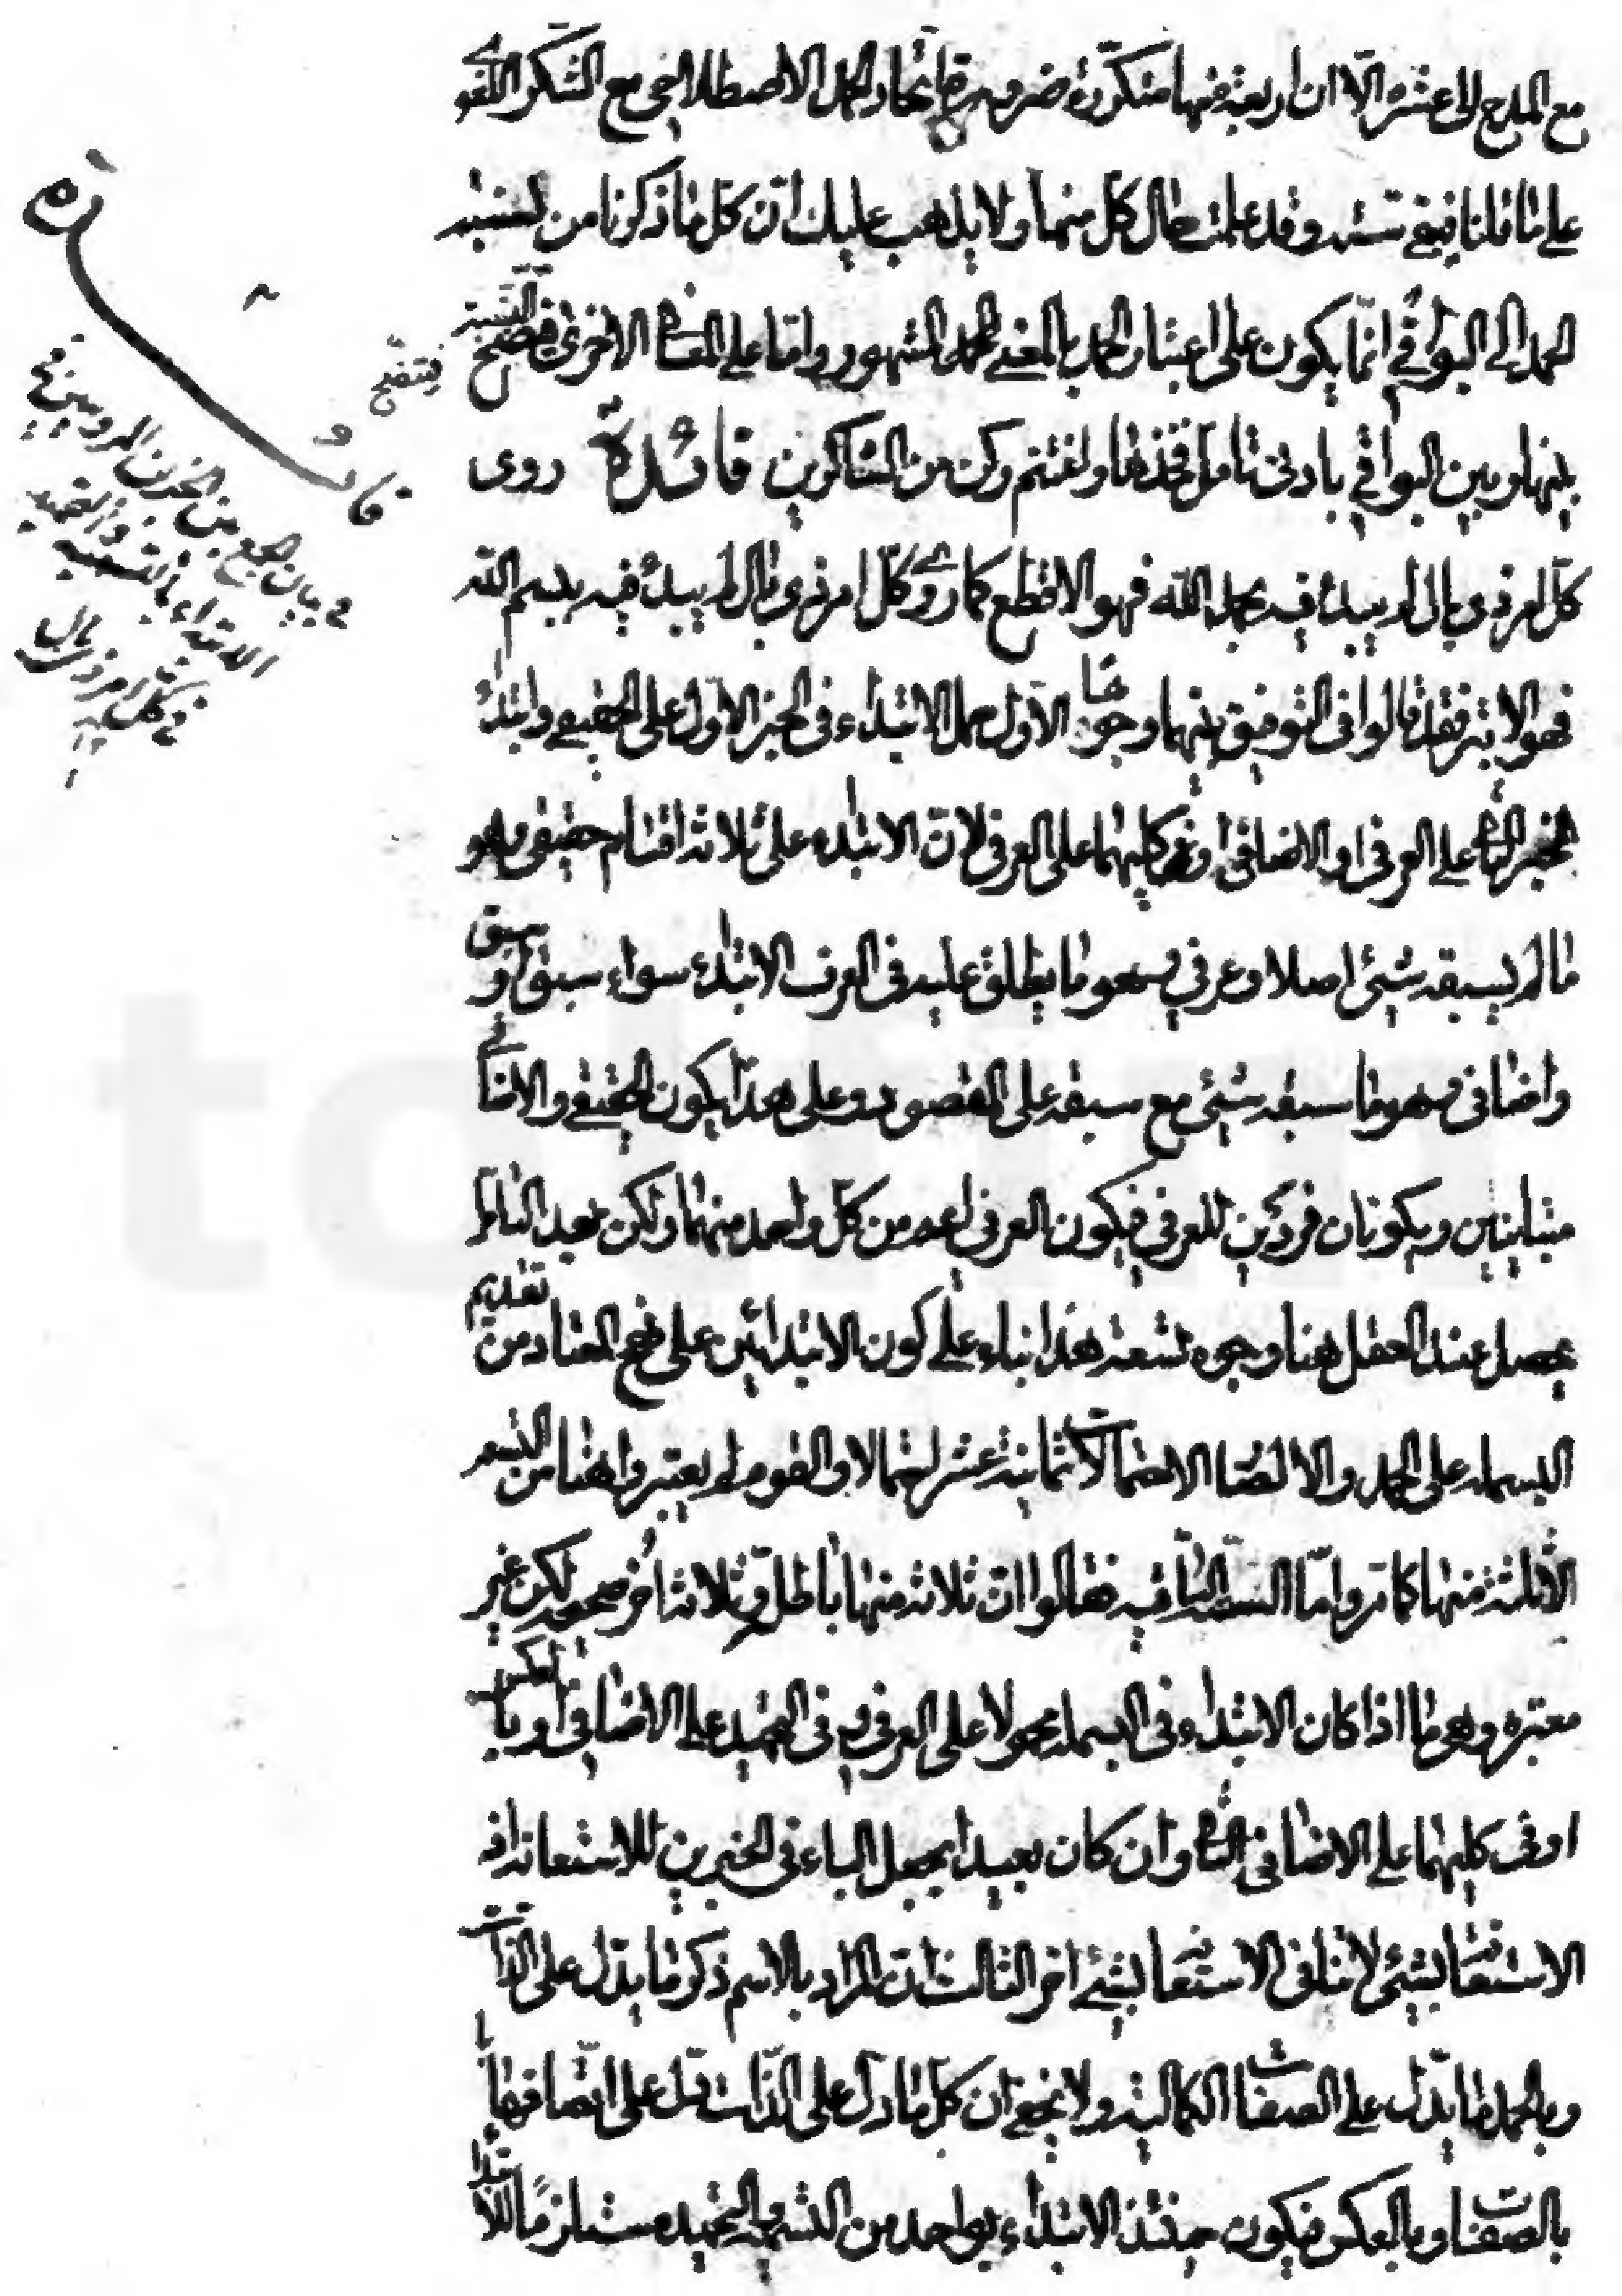 مع المدح الى عشرة الّا ان اربعة منها متكرّرة ضرورة اتحاد الحمد الاصطلاحى مع الشكر اللغوى
على ما قلنا فيبقى ستة وقد علمت حال كلّ منها ولا يذهب عليك انّ كلّ ما ذكرنا من نسبة
الحمد الى البواقى انّما يكون على اعتبار الحمد بالمعنى المشهور وامّا على المعنى الاخرى فتتضح النسبة
بينها وبين البواقى بادنى تامل فخذها واغتنم وكن من الشاكرين فائدة روى
كلّ امر ذى بال لم يبدء فيه بحمد الله فهو الاقطع كما روى كلّ امر ذى بال لم يبدء فيه ببسم الله
فهو الابتر فقد قالوا فى التوفيق بينهما وجوها الاوّل حمل الابتداء فى الخبر الاول على الحقيقى وابتداء
الخبر الثانى على العرفى او الاضافى او فى كليهما على العرفى لانّ الابتداء على ثلاثة اقسام حقيقى وهو
ما لم يسبقه شيئ اصلا وعرفى وهو ما يطلق عليه فى العرف الابتداء سواء سبق او سبق
واضافى وهو ما سبقه شيئ مع سبقه على المقصود وعلى هذا يكون الحقيقى والاضافى
متباينين ويكونان فردين للعرفى فيكون العرفى اعم من كل واحد منهما ولكن بعد التامل
يحصل عند العقل هنا وجوه تسعة هذا بناء على كون الابتدائين على نهج المعتاد من تقديم
البسملة على الحمد والا لصار الاحتمالات ثمانية عشر احتمالا والقوم لم يعتبروا هنا من التسعة
الا ثلثة منها كما مر وامّا الستّة الباقية فقالوا انّ ثلاثة منها باطل وثلاثا اخر صحيحة لكن غير
معتبرة وهو ما اذا كان الابتداء فى البسملة محمولا على العرفى وفى التحميد على الاضافى او بالعكس
او فى كليهما على الاضافى الثانى وان كان بعيدا بجعل الباء فى الخبرين للاستعانة اذ
الاستعانة بشيئ لا تنافى الاستعانة بشيئ اخر الثالث ان المراد بالاسم ذكر ما يدل على الذات
وبالحمد ما يدّل على الصفات الكمالية ولا يخفى ان كل ما دل على الذات دل على اتصافها
بالصفات وبالعكس فيكون حينئذ الابتداء بواحد من التسمية والتحميد مستلزما للابتداء
فتتضح
فائدة
فى بيان الجمع بين الخبرين المرويين فى
الابتداء بالتسمية والتحميد
فى كل امر ذى بال